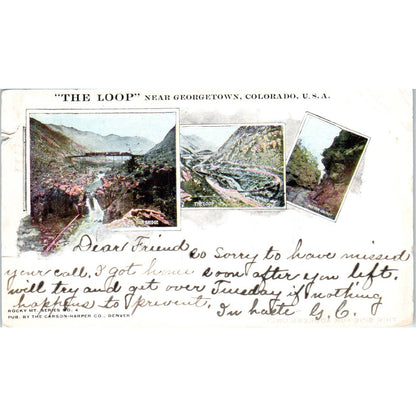 "THE LOOP" NEAR GEORGETOWN, COLORADO, U.S.A.
BRIDGE
THE LOOP
Dear Friend
So sorry to have missed
your call, I got home soon after you left.
will try and get over Tuesday if nothing
happens to prevent. In haste G. C.
ROCKY MT. SERIES NO. 4
PUB. BY THE CARSON-HARPER CO., DENVER